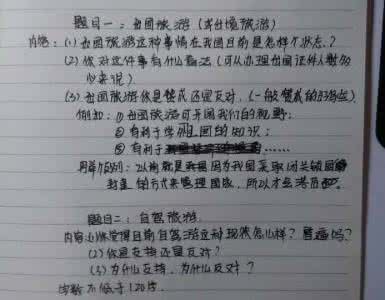 题目一：出国旅游（或出境旅游）
内容：(1) 出国旅游这种事情在我国目前是怎样个状态？
(2) 你对这件事有什么看法（可以办理出国证件人数的多少来说）
(3) 出国旅游你是赞成还是反对，（一般赞成的好些）
例如：① 出国旅游可开阔我们的视野；
② 有利于学到国的知识；
③ 有利于……
用举例：以前就是因为我国采取闭关锁国
封建 的方式来管理国家，所以才会落后
题目二：自驾旅游
内容：(1) 你觉得目前自驾游这种现状怎么样？普遍吗？
(2) 你是支持还是反对？
(3) 为什么支持，为什么反对？
字数不低于120字